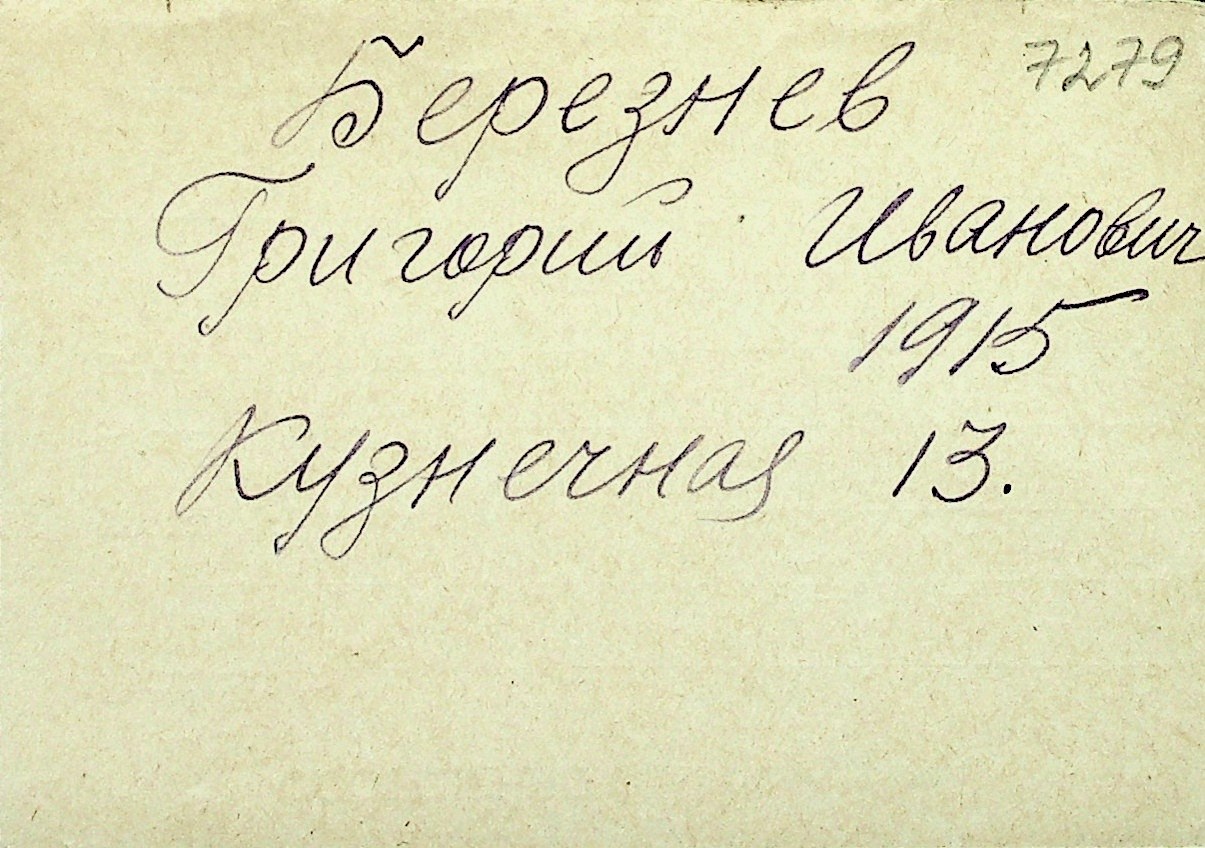 7279
Березнев
Григорий Иванович
1915
Кузнечная 13.